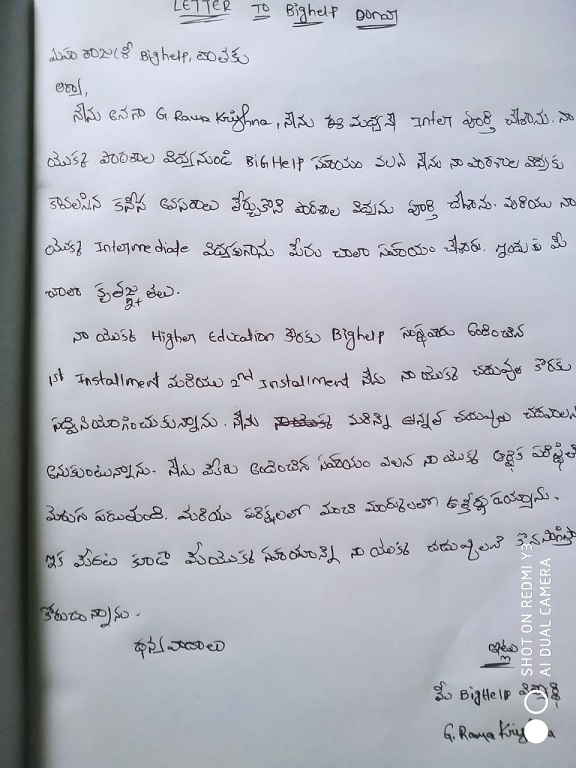 LETTER TO BigHelp Donor
మహా రాజశ్రీ BigHelp, దాతకు
ఆర్యా,
నేను అనగా G. Rama Krishna, నేను ఈ మధ్యనే Inter పూర్తి చేశాను. నా
యొక్క పాఠశాల విద్యనుండి BiGHelp సహాయం వలన నేను నా పాఠశాల విద్యకు
కావలసిన కనీస అవసరాలు తీర్చుకొని పాఠశాల విద్యను పూర్తి చేశాను. మరియు నా
యొక్క Intermediate విద్యకుగాను మీరు చాలా సహాయం చేశారు. ఇందుకు మీ
చాలా కృతజ్ఞతలు.
నా యొక్క Higher Education కొరకు BigHelp సంస్థవారు అందించిన
1st Installment మరియు 2nd Installment నేను నా యొక్క చదువుల కొరకు
సద్వినియోగించుకున్నాను. నేను మరిన్ని ఉన్నత చదువులు చదవాలని
అనుకుంటున్నాను. నేను మీరు అందించిన సహాయం వలన నా యొక్క ఆర్థిక పరిస్థితి
మెరుగు పడుతుంది. మరియు పరీక్షలలో మంచి మార్కులతో ఉత్తీర్ణుడయ్యాను.
ఇక మీదట కూడా మీయొక్క సహాయాన్ని నా యొక్క చదువులకై
కోరుచున్నాను.
ధన్యవాదాలు
ఇట్లు
మీ BigHelp విద్యార్థి
G. Rama Krishna
SHOT ON REDMI Y3
AI DUAL CAMERA